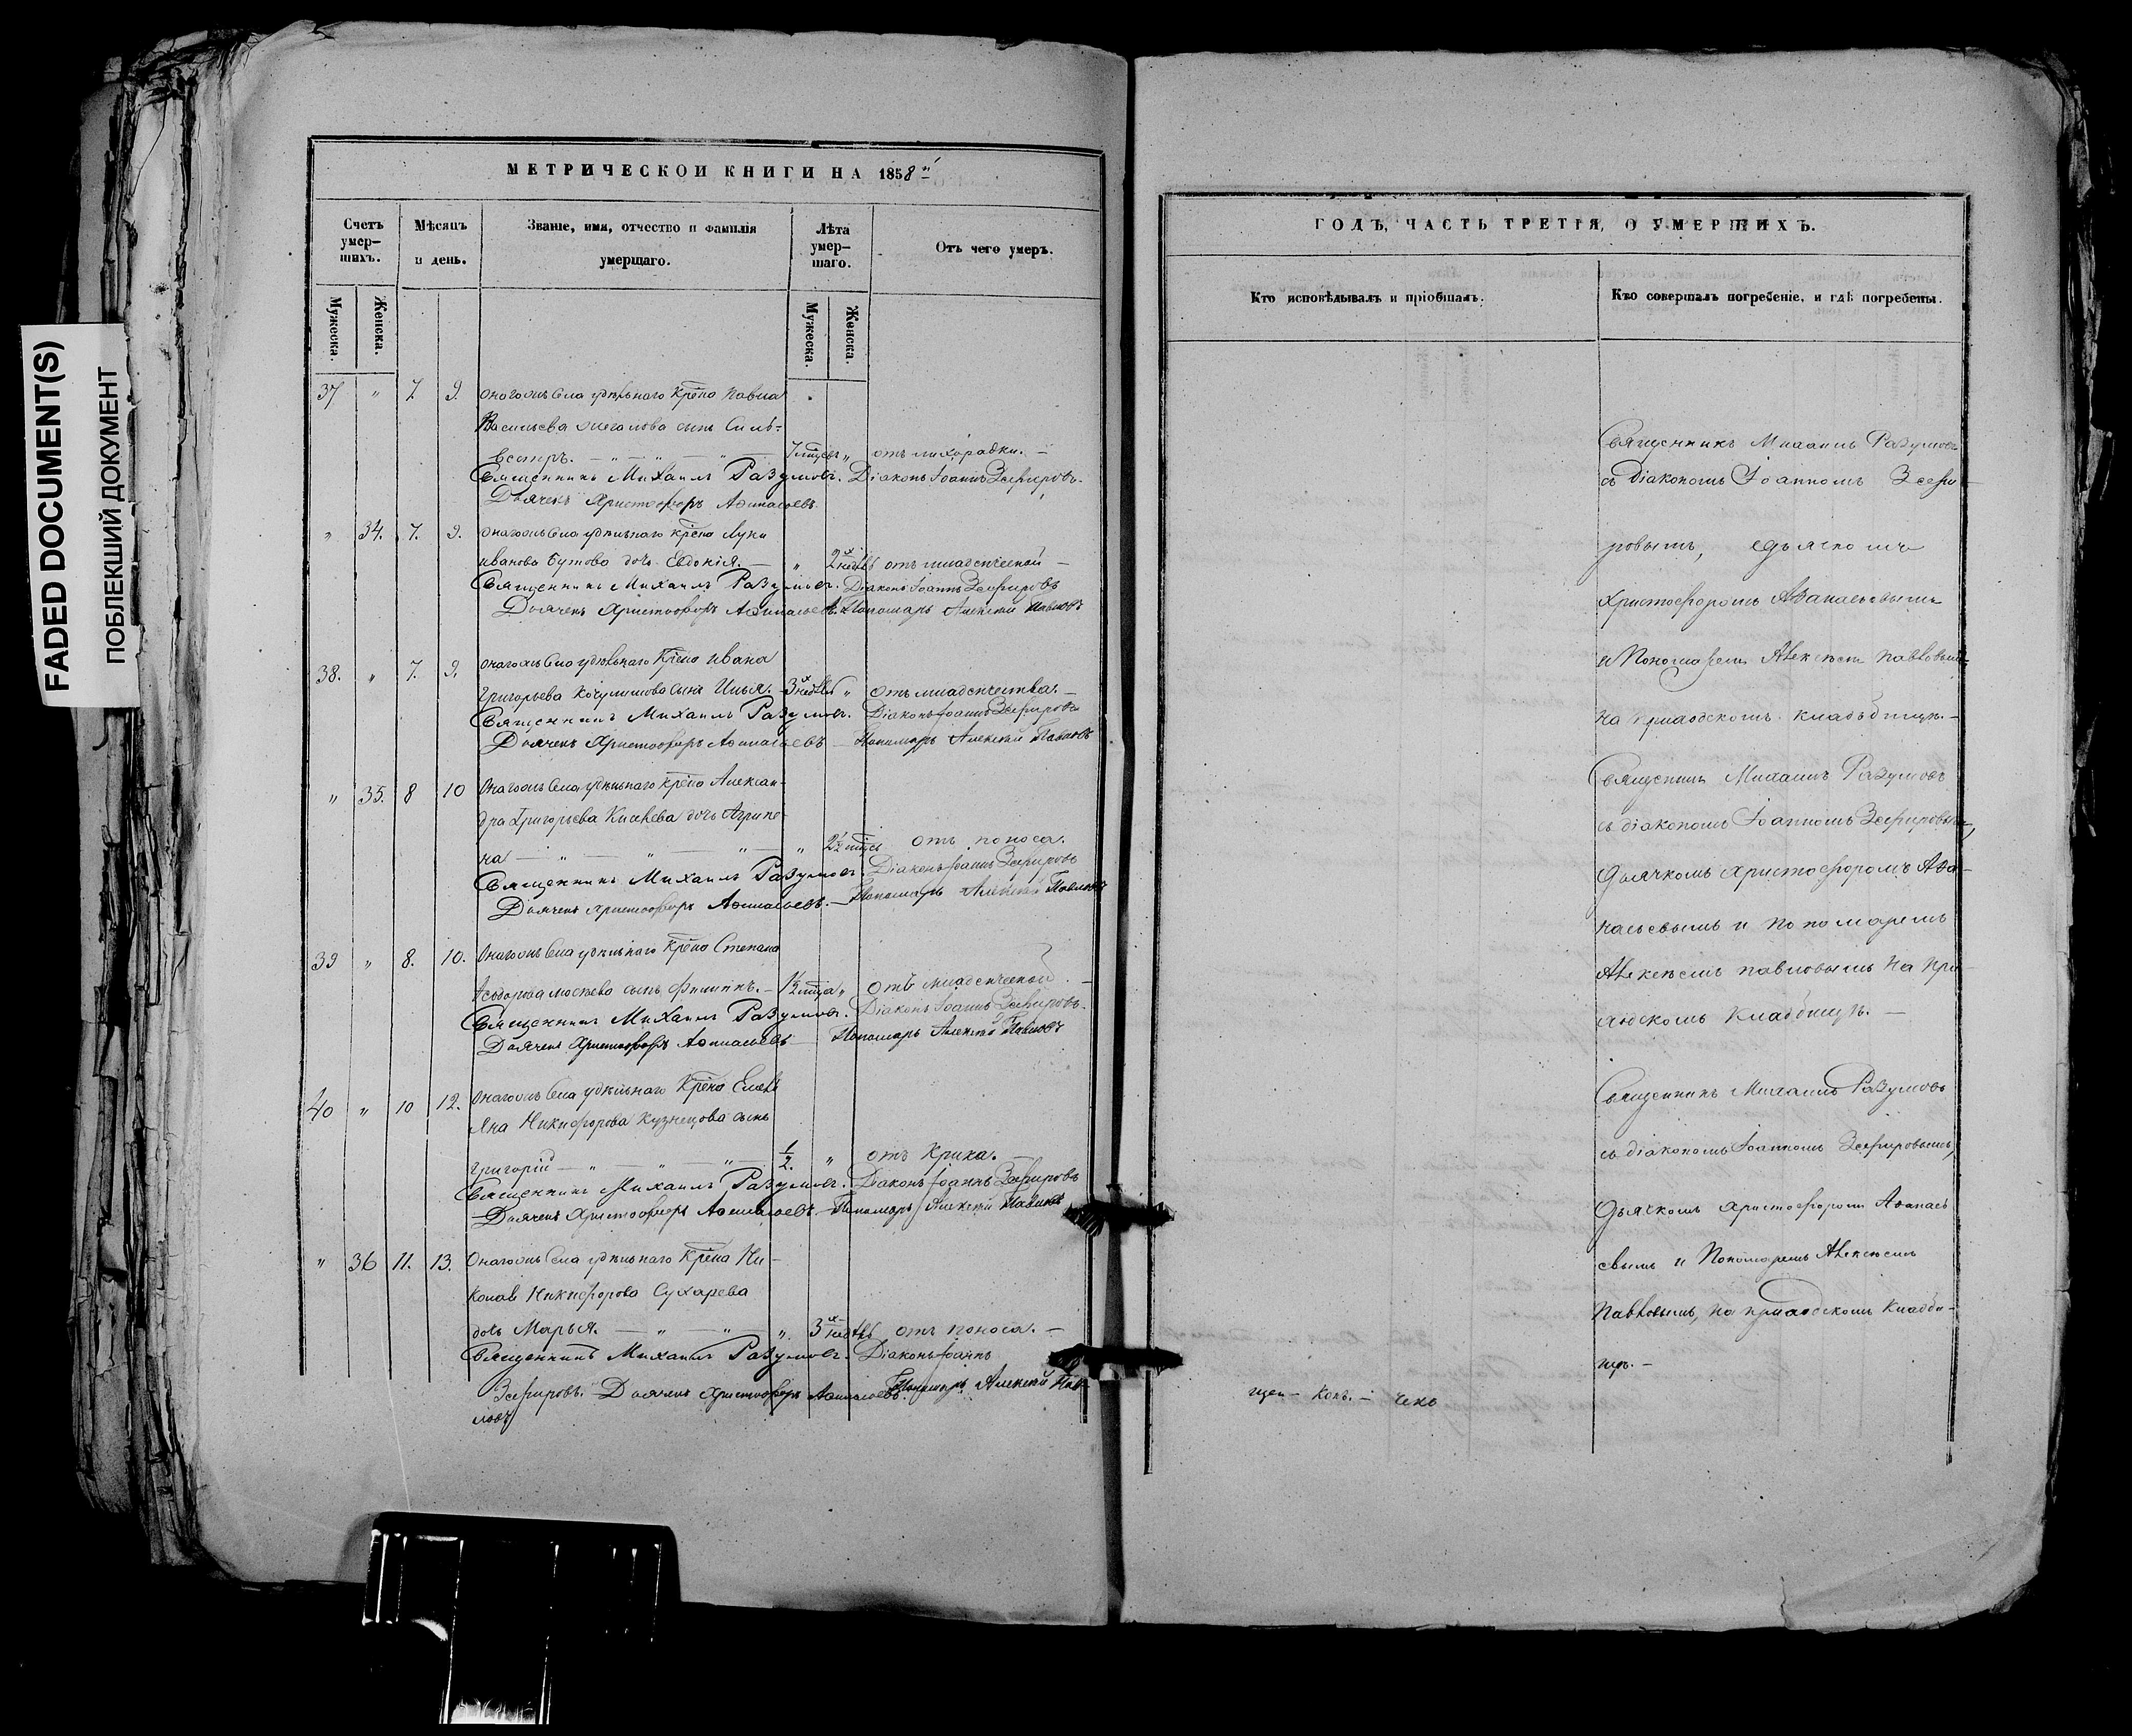 FADED DOCUMENT(S)
ПОБЛЕКШИЙ ДОКУМЕНТ
МЕТРИЧЕСКОЙ КНИГИ НА 1858й
Счетъ умер-шихъ.
Мѣсяцъ и день.
Званіе, имя, отчество и фамилія умершаго.
Лѣта умер-шаго.
Отъ чего умеръ.
Мужеска. Женска.
Мужеска. Женска.
37 " 7 9. Онагожъ Села удѣльнаго Крѣна Павла
Васильева сынъ Силь-
вестръ. 7 мцевъ " отъ лихорадки. —
Священникъ Михаилъ Разумовъ. Діаконъ Іоаннъ Зефировъ.
Дьячекъ Христофоръ Афанасьевъ.
" 34. 7. 9. Онагожъ Села удѣльнаго крѣна Луки
Иванова Бутова дочь Евдокія. — " 2х недѣль отъ младенческой —
Священникъ Михаилъ Разумовъ. Діаконъ Іоаннъ Зефировъ
Дьячекъ Христофоръ Афанасьевъ. Пономарь Алексѣй Павловъ
38. " 7. 9. Онагожъ Села удѣльнаго Крѣна Ивана
Григорьева сынъ Илья. — 3х недѣль " отъ младенчества. —
Священникъ Михаилъ Разумовъ. Діаконъ Іоаннъ Зефировъ
Дьячекъ Христофоръ Афанасьевъ — Пономарь Алексѣй Павловъ
" 35. 8 10 Онагожъ Села удѣльнаго крѣна Алексан-
дра Григорьева дочь Агрипе-
на — " — " — " — " 2½ мцсъ отъ поноса.
Священникъ Михаилъ Разумовъ. Діаконъ Іоаннъ Зефировъ
Дьячекъ Христофоръ Афанасьевъ. — Пономарь Алексѣй Павловъ
39 " 8. 10. Онагожъ Села удѣльнаго Крѣна Степана
Ѳедорова сынъ Филиппъ. — ½ мца " отъ младенческой. —
Священникъ Михаилъ Разумовъ. Діаконъ Іоаннъ Зефировъ.
Дьячекъ Христофоръ Афанасьевъ — Пономарь Алексѣй Павловъ
40 " 10 12. Онагожъ Села удѣльнаго Крѣна Емель
яна Никифорова Кузнецова сынъ
Григорій — " — " — " — ½. " отъ Крика. —
Священникъ Михаилъ Разумовъ. Діаконъ Іоаннъ Зефировъ
Дьячекъ Христофоръ Афанасьевъ. — Пономарь Алексѣй Павловъ
" 36 11. 13. Онагожъ Села удѣльнаго Крѣна Ни-
колая Никифорова Сухарева
дочь Марья. — " — " — ". 3х недѣль отъ поноса. —
Священникъ Михаилъ Разумовъ. Діаконъ Іоаннъ
Зефировъ. Дьячекъ Христофоръ Афанасьевъ. Пономарь Алексѣй Пав-
ловъ
ГОДЪ, ЧАСТЬ ТРЕТІЯ, О УМЕРШИХЪ.
Кто исповѣдывалъ и пріобщалъ.
Кто совершалъ погребеніе, и гдѣ погребены.
Священникъ Михаилъ Разумовъ
съ Діакономъ Іоанномъ Зефи-
ровымъ, съ дьячкомъ
Христофоромъ Афанасьевымъ
и Пономаремъ Алексѣемъ Павловымъ
на приходскомъ кладбищѣ. —
Священникъ Михаилъ Разумовъ
съ діакономъ Іоанномъ Зефировымъ,
дьячкомъ Христофоромъ Афа-
насьевымъ и Пономаремъ
Алексѣемъ Павловымъ на при
ходскомъ кладбищѣ. —
Священникъ Михаилъ Разумовъ
съ діакономъ Іоанномъ Зефировымъ,
дьячкомъ Христофоромъ Афанась
евымъ и Пономаремъ Алексѣемъ
Павловымъ, на приходскомъ кладби-
щѣ. —